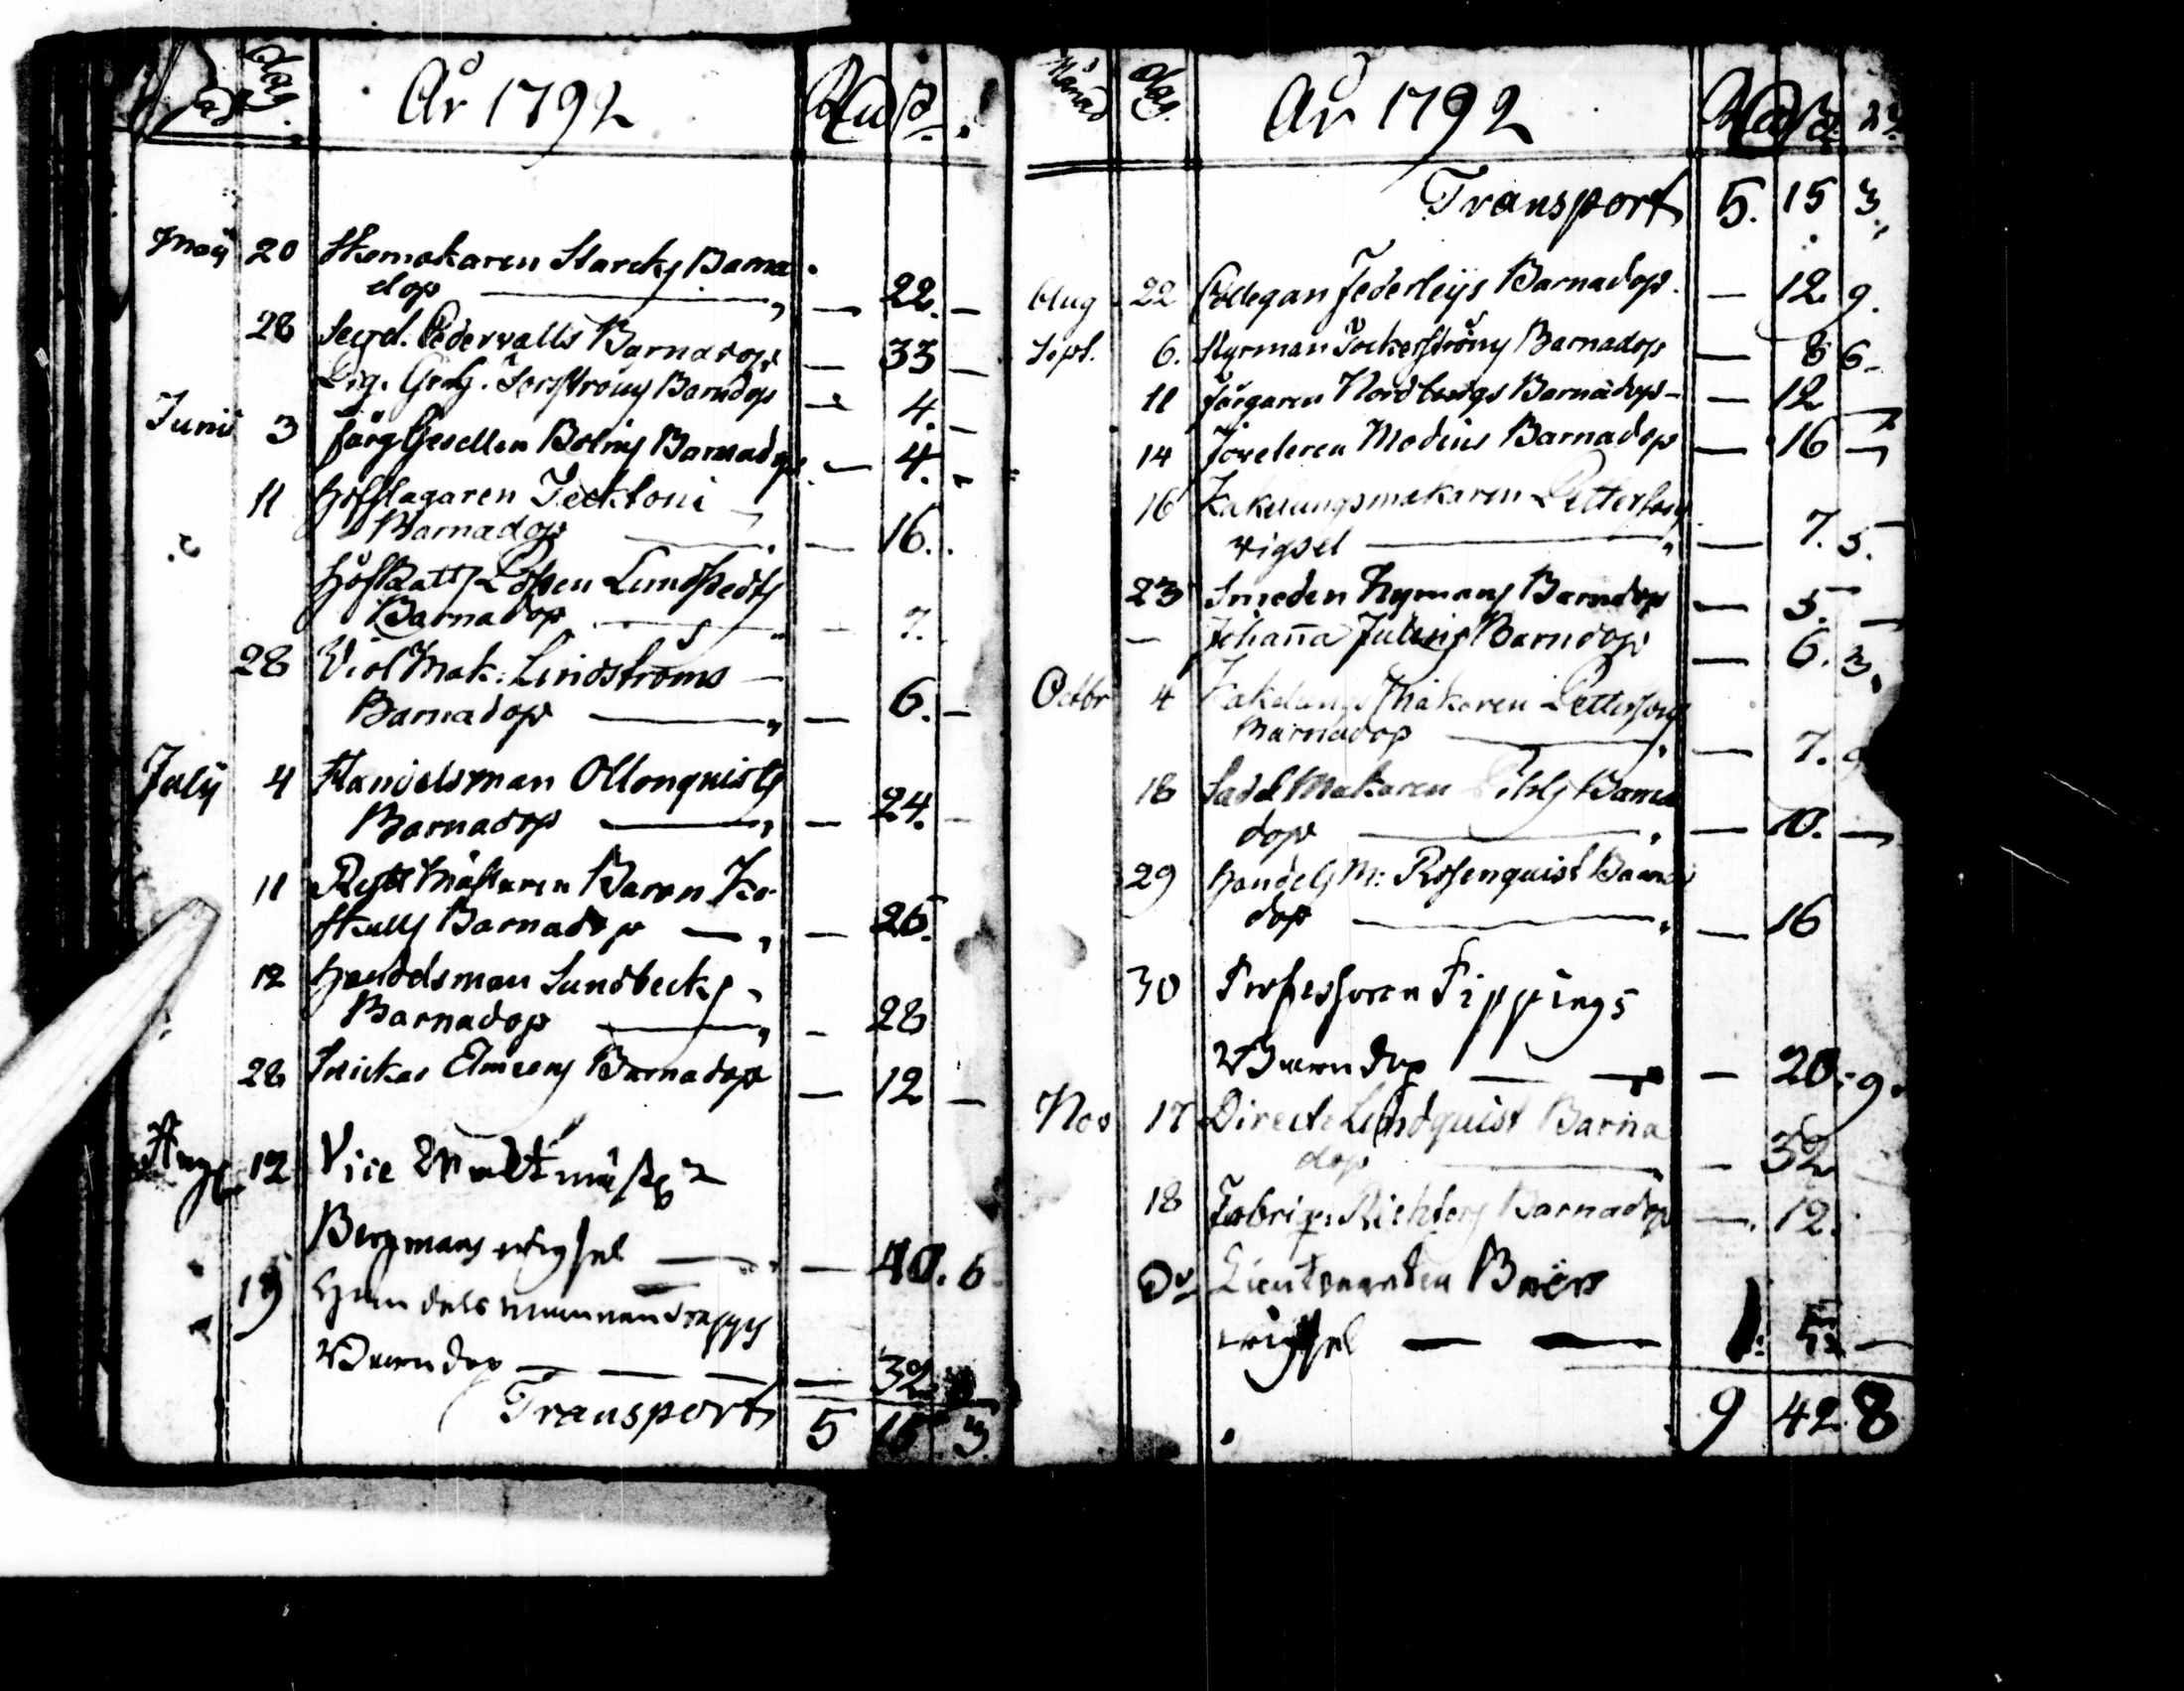 Dag. År 1792 Rd ß.
Maij 20 Skomakaren Starcks Barna
dop — 22. —
28 Segel. Cedervalls Barnadop — 33 —
Barndop — 4. —
Junii 3 färg Gesellen Bolins Barnadop — 4. —
11 Hofslagaren
Barnadop — 16.
Lundstedts
Barnadop — 7.
28 Viol Mak: Lindströms —
Barnadop — 6. —
Julij 4 Handelsman Ollonquists
Barnadop — 24. —
11 Ryttmästaren Baron Ko-
skulls Barnadop — 26.
12 Handelsman Sundbecks
Barnadop — 28
28 Snickar Elmens Barnadop — 12 —
Aug. 12 Vice
Bergmans wigsel — 40. 6
19 Handelsmannen
Barndop — 32
Transport 5 15 3
Månad Dag. År 1792 Rd ß.
Transport 5. 15 3.
Aug 22 Collegan Federleijs Barnadop. — 12. 9.
Sept. 6. Styrman Sockerströms Barnadop — 8 6.
11 färgaren Nordbergs Barnadop — 12
14 Joveleren Modins Barnadop — 16 —
16 Kakelungsmakaren Pettersons
vigsel — 7. 5.
23 Smeden Nymans Barndop — 5. —
— Johanna Julins Barndop — 6. 3.
Octbr 4 Kakelungs Makaren Pettersons
Barnadop — 7. 9
18 Sadel Makaren Pihls Barna
dop — 10. —
29 Handels M: Rosenquist Barna
dop — 16
30 Professoren Tippings
Barndop — 20. 9.
Nov 17 Direct: Lindquist Barna
dop — 32
18 Fabriq: Richters Barnadop — 12.
Do Lieutenanten Boërs
wigsel — 1: —
9 42. 8